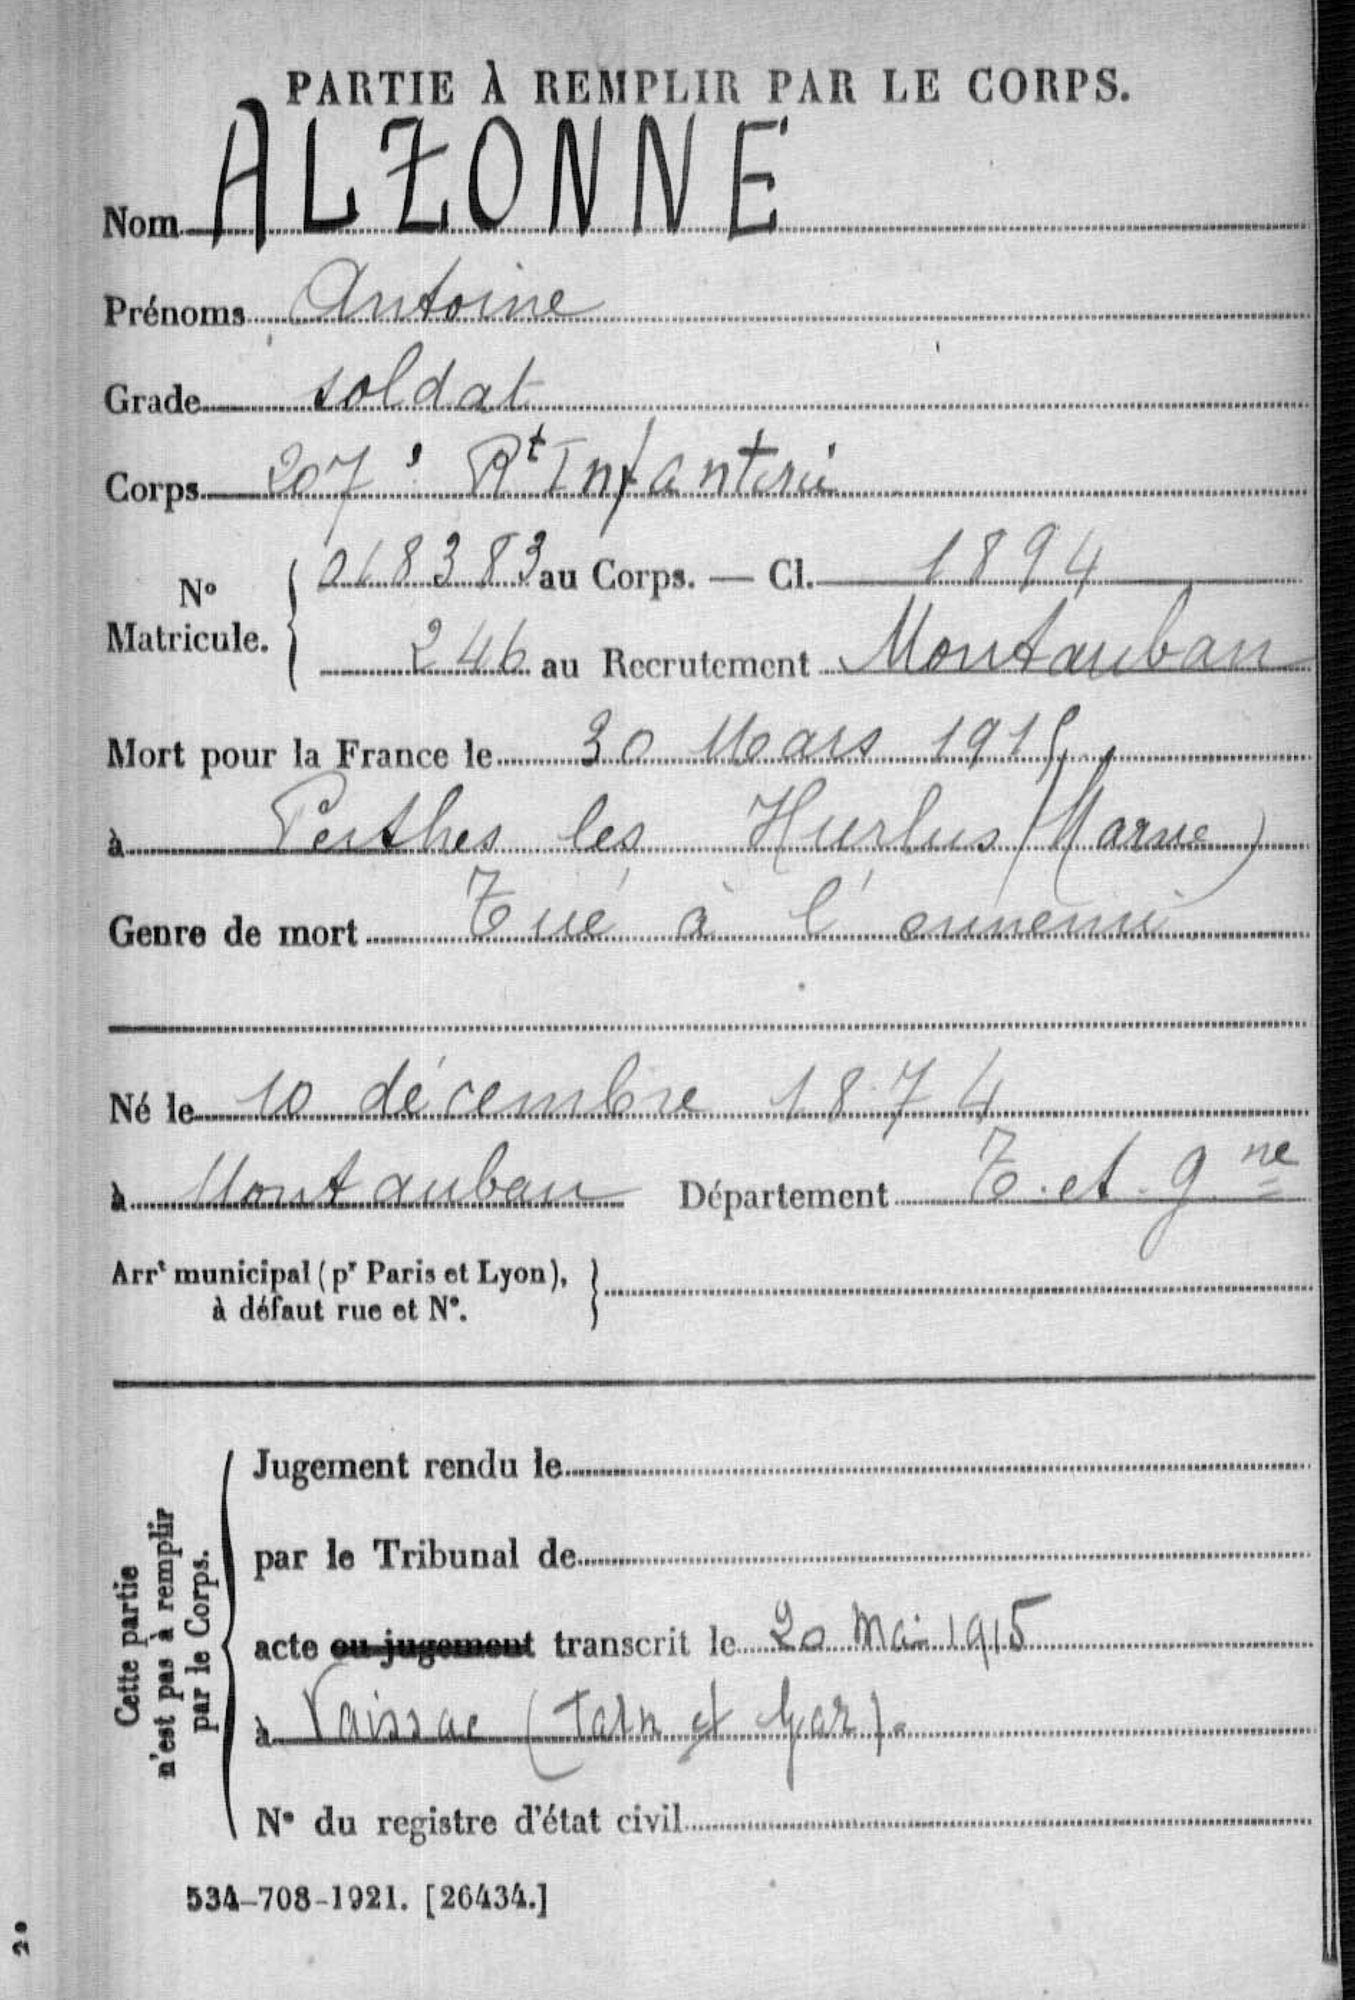 PARTIE À REMPLIR PAR LE CORPS.
Nom ALZONNE
Prénoms Antoine
Grade soldat
Corps 207e Rt Infanterie
No Matricule. 018383 au Corps. — Cl. 1894
246 au Recrutement Montauban
Mort pour la France le 30 Mars 1915
à Perthes les Hurlus (Marne)
Genre de mort Tué à l'ennemi
Né le 10 décembre 1874
à Montauban Département T. et Gne
Arrt municipal (pr Paris et Lyon),
à défaut rue et No.
Cette partie
n'est pas à remplir
par le Corps.
Jugement rendu le
par le Tribunal de
acte ou jugement transcrit le 20 Mai 1915
à Vaissac (Tarn et Gar).
No du registre d'état civil
534-708-1921. [26434.]
2°